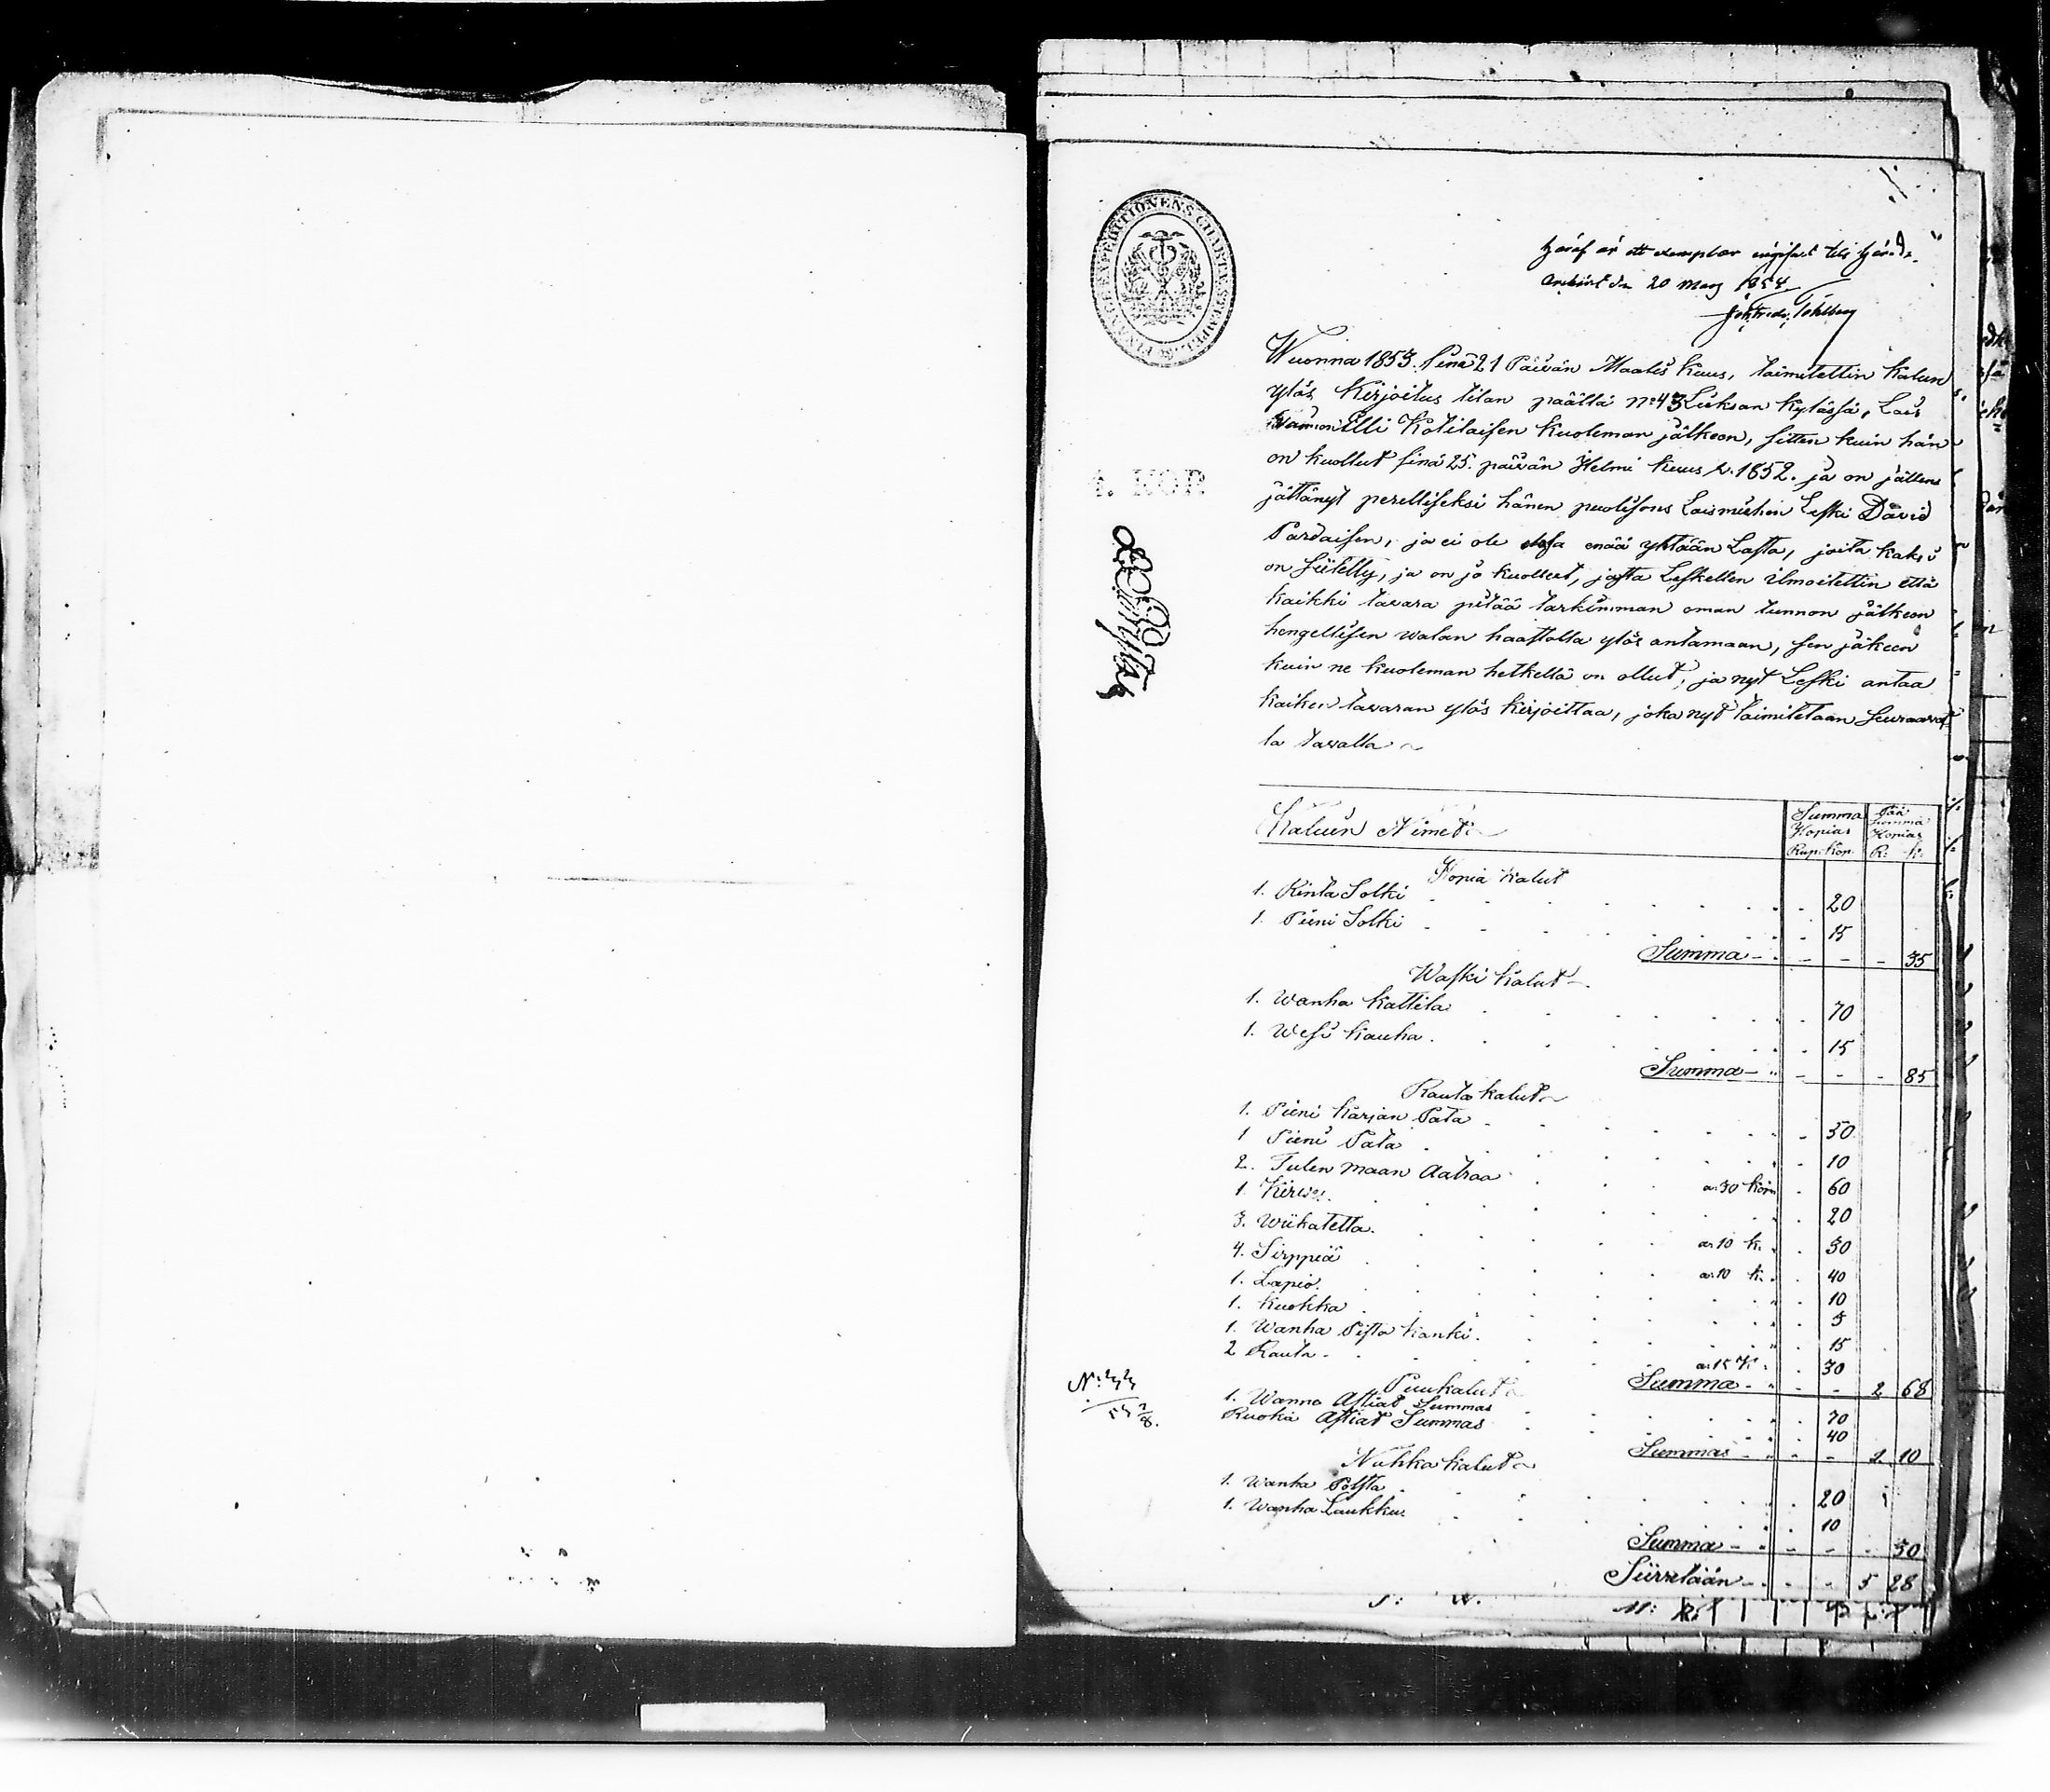 häraf är ett exemplar ingifvet till Härads
Archivet den 20 Mars 1854.
Wuonna 1853. Sinä 21 Päivän Maalis kuus, toimitettin kalun
ylös Kirjoitus tilan päällä No 43 Lieksan kylässä, Lois
Waimon Elli Kotilaisen kuoleman jälkeen, sitten kuin hän
on kuollut sinä 25. päivän Helmi kuus v. 1852. ja on jällens
jättänyt perilliseksi hänen puolisons Loismiehen Leski David
Pardaisen, ja ei ole elosa enää yhtään Lasta, joita kaksi
on siitetty, ja on jo kuolleet, josta Leskellen ilmoitettin että
kaikki tavara pitää tarkimman oman tunnon jälkeen
hengellisen walan haastolla ylös antamaan, sen jäkeen
kuin ne kuoleman hetkellä on ollut, ja nyt Leski antaa
kaiken tavaran ylös kirjoittaa, joka nyt toimitetaan seuraaval
la tavalla
4. KOP
Kaluin Nimet
Summa Hopias Rup. Kop.
Pää Summa Hopias R: k:
Hopia kalut
1. Rinta Solki 20
1. Pieni Solki 15
Summa 35
Waski kalut
1. Wanha kattila 70
1. Wesi kauha 15
Summa 85
Rauta kalut
1. Pieni karjan Pata 50
1 Pieni Pata 10
2. Tulen maan Aatraa a 30 kop 60
1. Kirwes 20
3. Wiikatetta a 10 k. 30
4. Sirppiä a 10 k. 40
1. Lapio 10
1. Kuokka 5
1. Wanha Pista kanki 15
2 Rauta a 15 K 30
Summa 2 68
Puukalut
1. Wanno Astiat Summas 70
Ruoka Astiat Summas 40
Summas 1 10
Nahka kalut
1. Wanha Polsta 20
1. Wanha Laukku 10
Summa 30
Siirretään 5 28